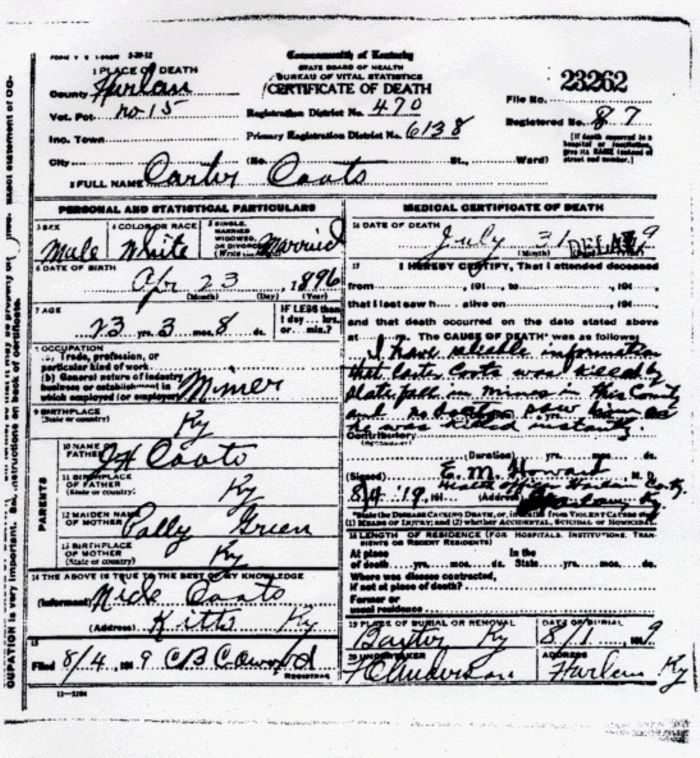 Commonwealth of Kentucky
STATE BOARD OF HEALTH
BUREAU OF VITAL STATISTICS
CERTIFICATE OF DEATH
1 PLACE OF DEATH
County Harlan
Vot. Pct. no-15
Inc. Town
City (No. St., Ward)
Registration District No. 470
Primary Registration District No. 6138
23262
File No.
Registered No. 87
[If death occurred in a hospital or institution, give its NAME instead of street and number.]
2 FULL NAME Carter Coots
PERSONAL AND STATISTICAL PARTICULARS
3 SEX Male
4 COLOR OR RACE White
5 SINGLE, MARRIED WIDOWED, OR DIVORCED (Write the word) Married
6 DATE OF BIRTH
Apr 23, 1896
(Month) (Day) (Year)
7 AGE
23 yrs. 3 mos. 8 ds.
IF LESS than 1 day hrs. or min.?
8 OCCUPATION
(a) Trade, profession, or particular kind of work
(b) General nature of industry business or establishment in which employed (or employer) Miner
9 BIRTHPLACE
(State or country) Ky
PARENTS
10 NAME OF FATHER JH Coots
11 BIRTHPLACE OF FATHER
(State or country) Ky
12 MAIDEN NAME OF MOTHER Polly Green
13 BIRTHPLACE OF MOTHER
(State or country) Ky
14 THE ABOVE IS TRUE TO THE BEST OF MY KNOWLEDGE
(Informant) Nick Coots
(Address) Kitts Ky
15
Filed 8/4, 1919 CB Cawood
REGISTRAR
13-5204
MEDICAL CERTIFICATE OF DEATH
16 DATE OF DEATH
July 31 9
DELAYED
(Month)
17 I HEREBY CERTIFY, That I attended deceased
from , 191 , to , 191 ,
that I last saw h alive on , 191 ,
and that death occurred on the date stated above
at m. The CAUSE OF DEATH* was as follows:
I have reliable information
that Carter Coots was killed by
slate fall in mines in this County
and no doctor saw him as
he was killed instantly.
Contributory
(Duration) yrs. mos. ds.
(Signed) E. M. Howard M. D.
Health Officer Harlan Co Ky.
8/4 '19, 191 (Address) Harlan Ky.
*State the DISEASE CAUSING DEATH, or, in deaths from VIOLENT CAUSES state
(1) MEANS OF INJURY; and (2) whether ACCIDENTAL, SUICIDAL or HOMICIDAL.
18 LENGTH OF RESIDENCE (FOR HOSPITALS, INSTITUTIONS, TRANSIENTS OR RECENT RESIDENTS)
At place of death yrs. mos. ds. In the State yrs. mos. ds.
Where was disease contracted, if not at place of death?
Former or usual residence
19 PLACE OF BURIAL OR REMOVAL
Baxter Ky
DATE OF BURIAL
8/1, 1919
20 UNDERTAKER
Anderson
ADDRESS
Harlan Ky
CUPATION is very important. See instructions on back of certificate.